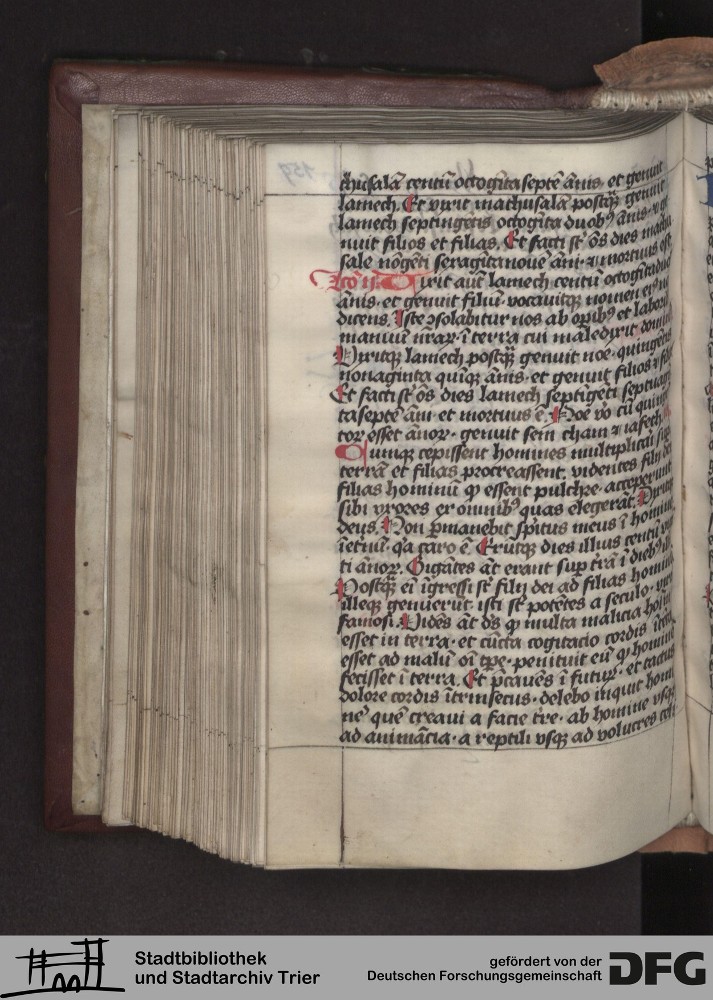 thusalā centū octogīta septē ānis, et genuit
lamech. Et vixit mathusalā postqꝫ genuit
lamech septingētis octogīta duobꝰ ānis. ⁊ ge
nuit filios et filias. Et facti sūt ōs dies mathu
sale nōgēti sexagīta nouē āni. ⁊ mortuus est.
Lcō ij. Vixit aūt lamech centū octogītaduo
ānis. et genuit filiū. vocauitqꝫ nomen eiꝰ noe
dicens. Iste ꝯsolabitur nos ab oꝑibꝰ et labori
manuū nr̄ar̄. ī terra cui maledixit domin
Vixitqꝫ lamech postqꝫ genuit noe. quingētis
nonaginta quīqꝫ ānis. et genuit filios ⁊ filias
Et facti sūt ōs dies lamech septigēti septuagī
taseptē āni et mortuus ē. Noe vo cū quingē
tor̄ esset ānor̄. genuit sem cham ⁊ iafeth.
Cumqꝫ cepissent homines multiplicāi sup
terrā et filias procreassent. videntes filij dei
filias hominū ꝙ essent pulchre. acceperunt
sibi vxores ex omnibꝰ quas elegerāt. Dixitqꝫ
deus. Non ꝑmanebit sp̄itus meus ī homine
īetnū. q̄a caro ē. Erūtqꝫ dies illius centū vigī
ti ānor̄. Gigātes āt erant sup trā ī diebꝰ ill
Postqꝫ eī īgressi sūt filij dei ad filias hominū
illeqꝫ genuerūt. isti sūt potētes a seculo. viri
famosi. Vidēs āt ds̄ ꝙ multa malicia hoīm
esset in terra. et cūcta cogitacio cordis ītēta
esset ad malū oī tꝑe. penituit eū ꝙ hominē
fecisset ī terra. Et p̄cauēs ī futuꝝ. et tactus
dolore cordis ītrinsecus. delebo inquit homi
nē quē creaui a facie tr̄e. ab homine vsqꝫ
ad animācia. a reptili vsqꝫ ad volucres celi
Stadtbibliothek
und Stadtarchiv Trier
gefördert von der
Deutschen Forschungsgemeinschaft
DFG